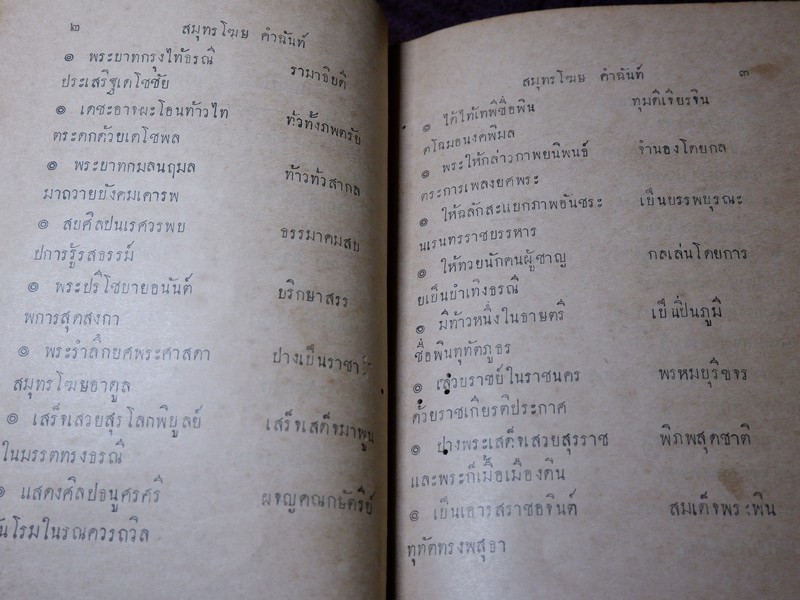 ๒ สมุทรโฆษ คำฉันท์
๏ พระบาทกรุงไทธรณี รามาธิบดี
ประเสริฐเดโชชัย
๏ เดชะอาจผะโอนท้าวไท ทั่วทั้งภพตรัย
ตระดกด้วยเดโชพล
๏ พระบาทกมลนฤมล ท้าวทั่วสากล
มาถวายบังคมเคารพ
๏ สบศิลปนเรศวรพบ ธรรมาคมสบ
ปการรู้รสธรรม์
๏ พระปริโชบายอนันต์ บริกษาสรร
พการสุดสงกา
๏ พระรำลึกยศพระศาสดา ปางเป็นราชา
สมุทรโฆษอาดูล
๏ เสร็จเสวยสุรโลกพิบูลย์ เสร็จเสด็จมาพูน
ในมรรตทรงธรณี
๏ แสดงศิลปธนูศรศรี ผจญคณกษัตรีย์
โรมในรณควรถวิล
สมุทรโฆษ คำฉันท์ ๓
๏ ได้ไท้เทพีชื่อพิน ทุมดีเจียรจิน
ดโฉมอนงคพิมล
๏ พระให้กล่าวกาพยนิพนธ์ จำนองโดยกล
ตระการเพลงยศพระ
๏ ให้ฉลักสะแบกภาพอันชระ เป็นบรรพบุรณะ
นเรนทรราชบรรหาร
๏ ให้ทวยนักคนผู้ชาญ กลเล่นโดยการ
ยเป็นบำเทิงธรณี
๏ มีท้าวหนึ่งในธาษตรี เป็นปิ่นภูมี
ชื่อพินทุทัตภูธร
๏ เสวยราชย์ในราชนคร พรหมบุรีขจร
ด้วยราชเกียรติประกาศ
๏ ปางพระเสด็จเสวยสุรราช พิภพสุดชาติ
และพระก็เมื้อเมืองดิน
๏ เป็นเอารสราชอจินต์ สมเด็จพระพิน
ทุทัตทรงพสุธา